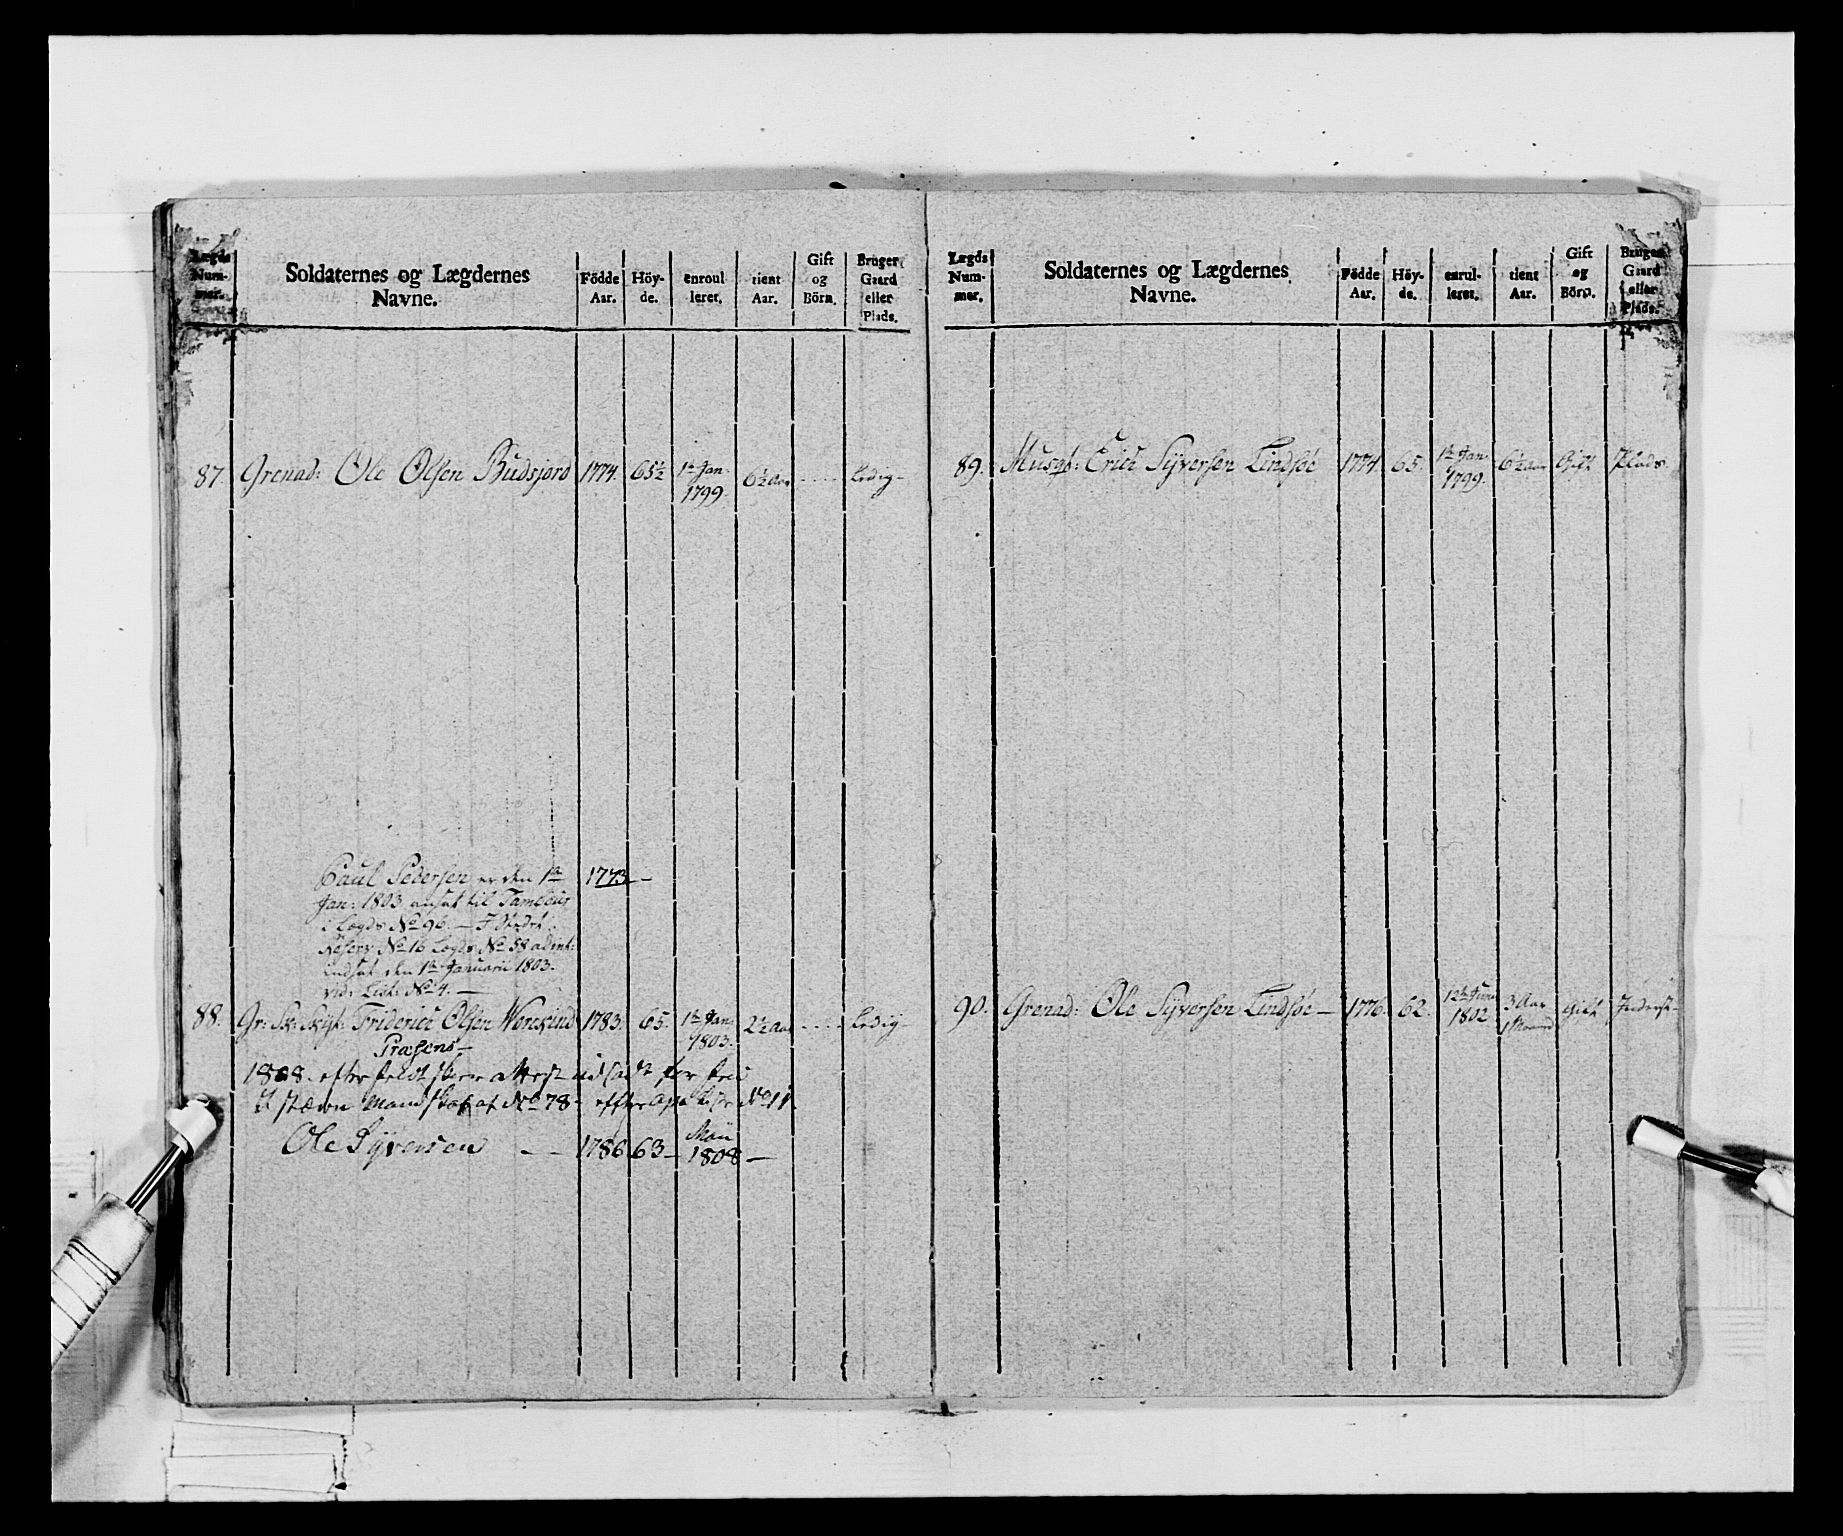 Lægds Num- mer.
Soldaternes og Lægdernes Navne.
Födde Aar.
Höy- de.
enroul leret.
tient Aar.
Gift og Börn.
Bruger Gaard eller Plads.
87. Grenad: Ole Olsen Budsjord 1774. 65½ 1te Jan: 1799. 6½ Aar ---- Ledig-
Paul Pedersen er den 1te 1773 -
Jan: 1803 ansat til Tambour
i Lægds No 96. -
Reserv No 16 Lægds No 58
indsat den 1te Januarii 1803.
vid: List: No 4. -
88. Gr: Sk: Friderich Olsen 1783. 65. 1te Jan: 1803. 2½ Aar ---- Ledig-
Præsens-
1808. efter attest udsadt for
Mandskab af No 78- efter No 11
Ole Syversen - - 1786 63- Maii 1808 -
Lægds Num- mer.
Soldaternes og Lægdernes Navne.
Födde Aar.
Höy- de.
enrul- leret.
tient Aar.
Gift og Börn.
Bruger Gaard eller Plads.
89. Musqt: Erich Syversen Lindsøe 1774. 65. 1te Jan: 1799. 6½ Aar Gift Plads.
90. Grenad: Ole Syversen Lindsøe - 1776. 62. 12te Juni 1802 3 Aar 1 Maaned Gift Inderst-